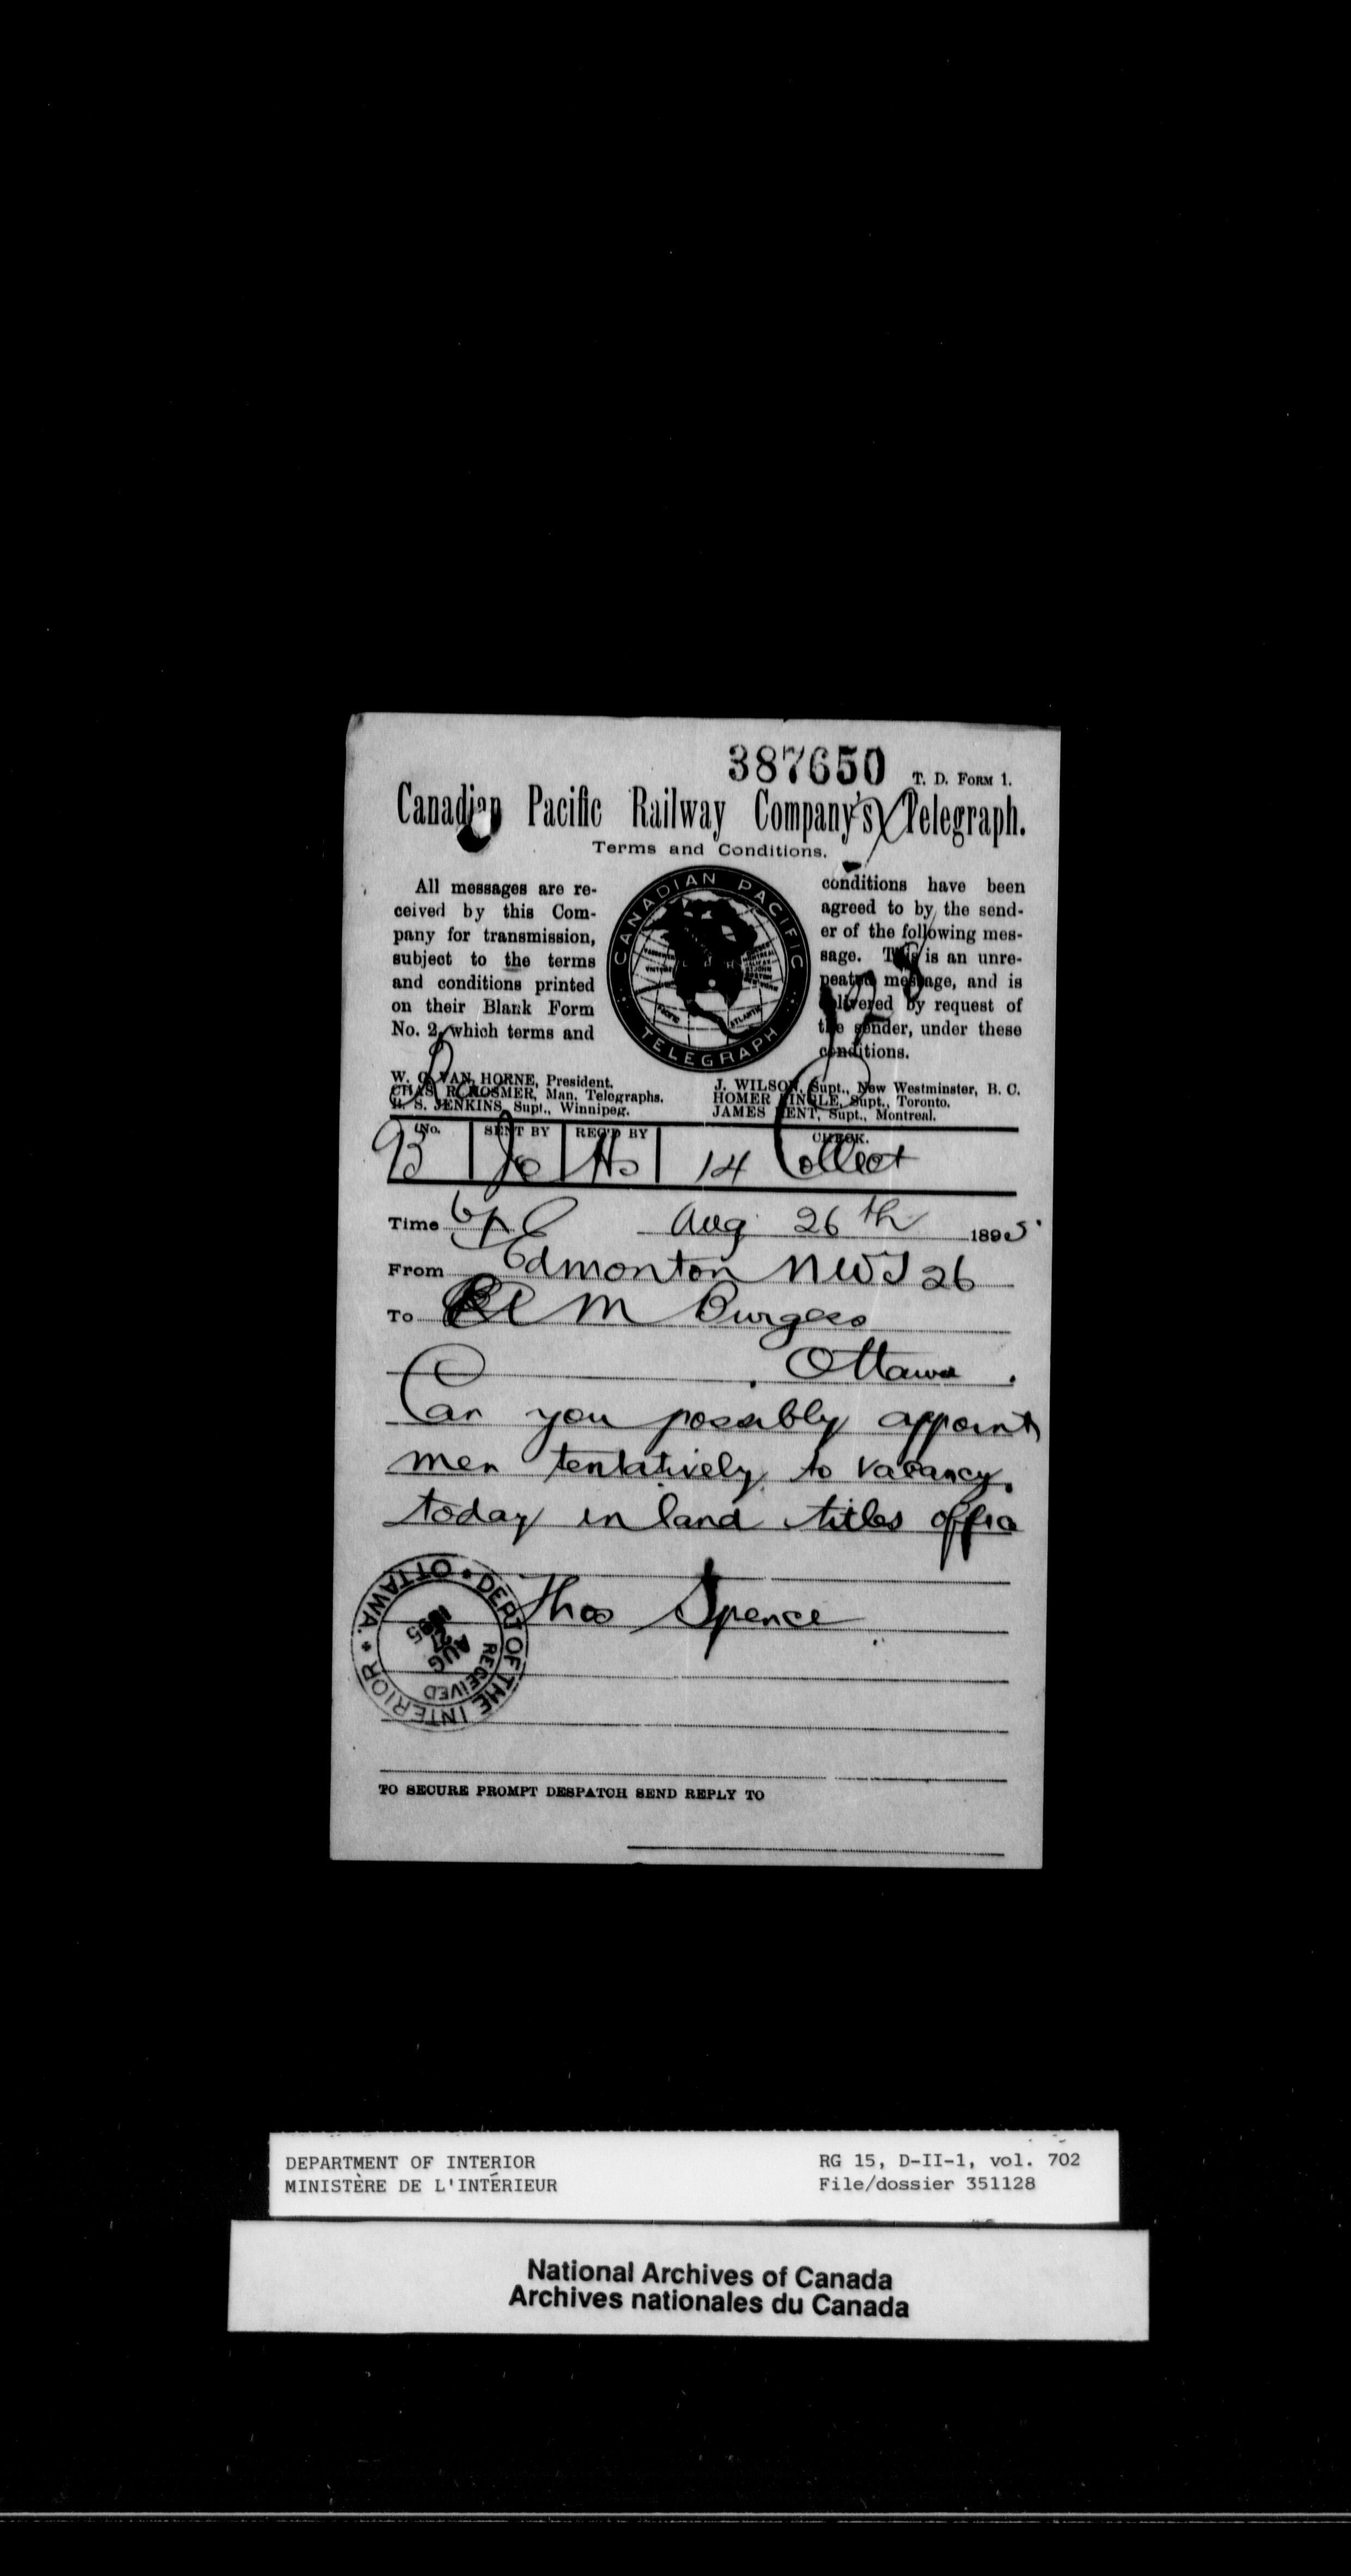 387650
T. D. FORM 1.
Canadian Pacific Railway Company's Telegraph.
Terms and Conditions.
All messages are re-
ceived by this Com-
pany for transmission,
subject to the terms
and conditions printed
on their Blank Form
No. 2, which terms and
CANADIAN PACIFIC
TELEGRAPH
PACIFIC
ATLANTIC
conditions have been
agreed to by the send-
er of the following mes-
sage. This is an unre-
peated message, and is
delivered by request of
the sender, under these
conditions.
W. C. VAN HORNE, President.
CHAS. R. HOSMER, Man. Telegraphs.
B. S. JENKINS, Supt., Winnipeg.
J. WILSON, Supt., New Westminster, B. C.
HOMER PINGLE, Supt., Toronto.
JAMES KENT, Supt., Montreal.
No. SENT BY REC'D BY CHECK.
93 Jo Ho 14 Collect
Time 6p Aug 26th 1895
From Edmonton NWT 26
To A M Burgess
Ottawa.
Can you possibly appoint
men tentatively to vacancy
today in land titles office
Thos Spence
DEPT OF THE INTERIOR * OTTAWA. *
RECEIVED
AUG
27
1895
TO SECURE PROMPT DESPATCH SEND REPLY TO
DEPARTMENT OF INTERIOR
MINISTÈRE DE L'INTÉRIEUR
RG 15, D-II-1, vol. 702
File/dossier 351128
National Archives of Canada
Archives nationales du Canada